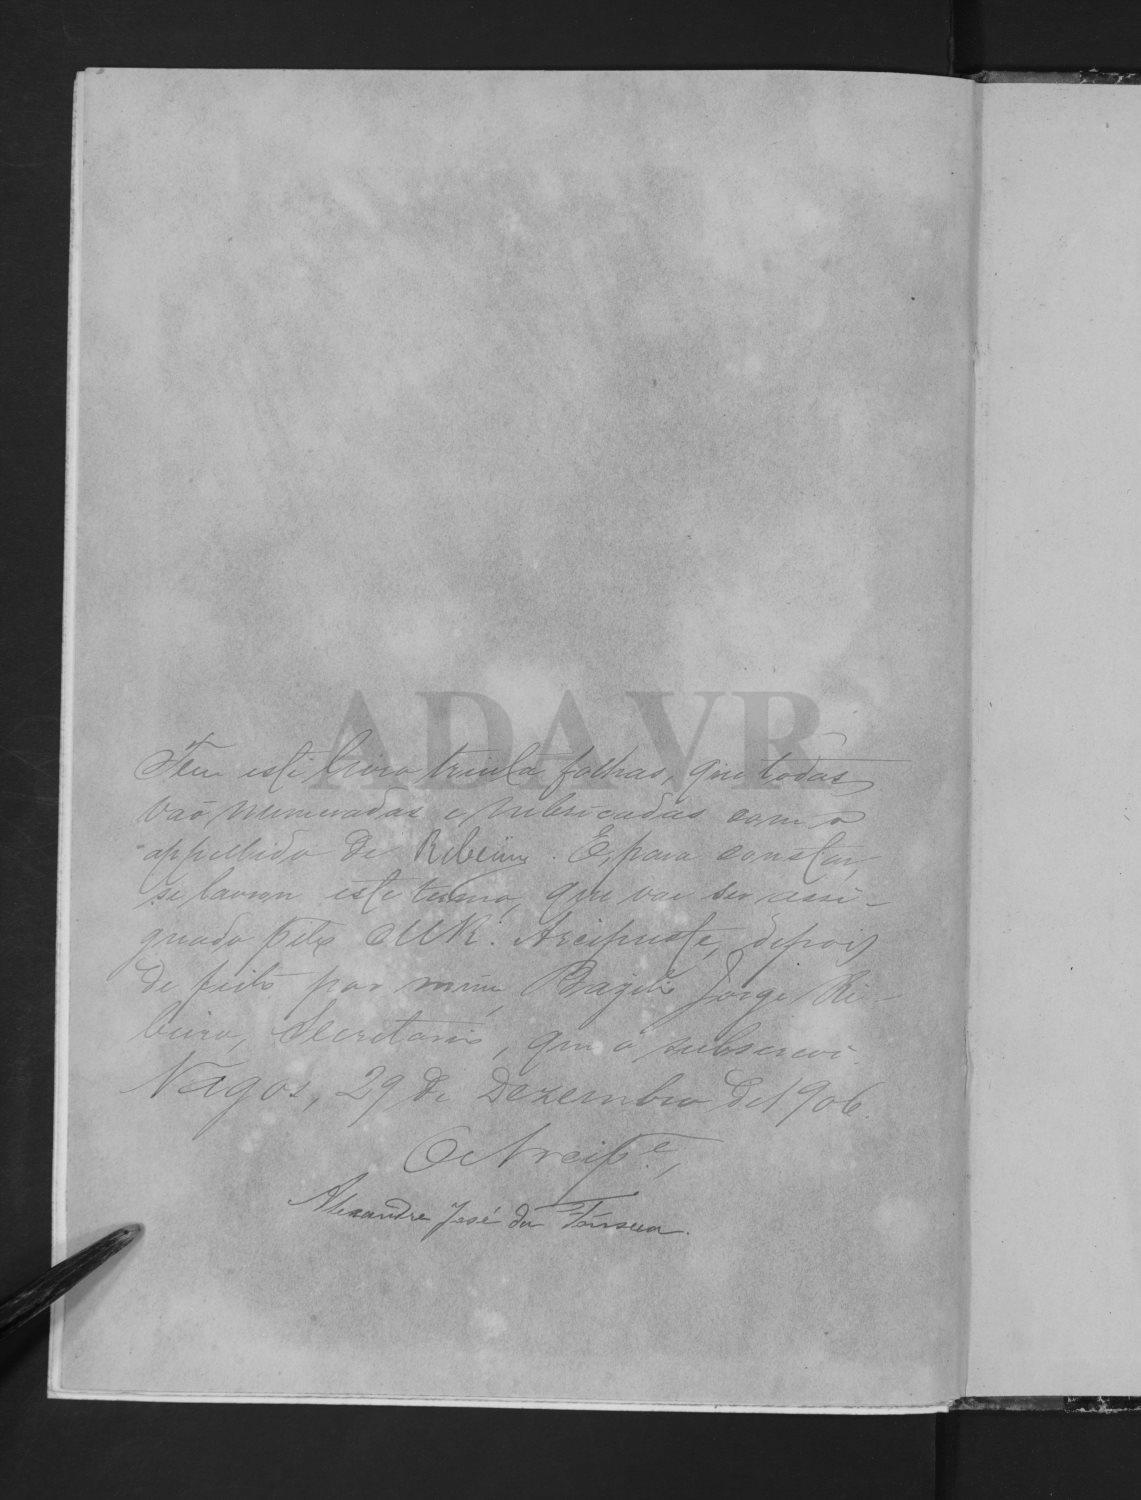 ADAVR
Tem este livro trinta folhas, que todas
vão numeradas e rubricadas com o
appellido de Ribeiro. E, para constar,
se lavrou este termo, que vae ser assi-
gnado pelo M.R. Arcipreste, depois
de feito por mim, Bazilio Jorge Ri-
beiro, Secretario, que o subscrevi.
Vagos, 29 de Dezembro de 1906.
O Arcip.e,
Alexandre José da Fonseca.